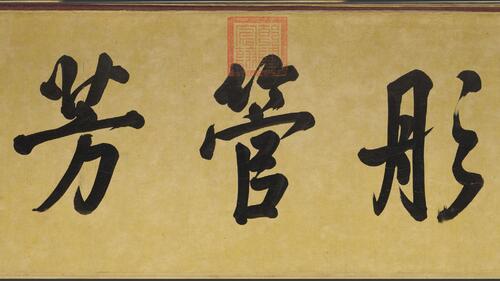 彤管芳